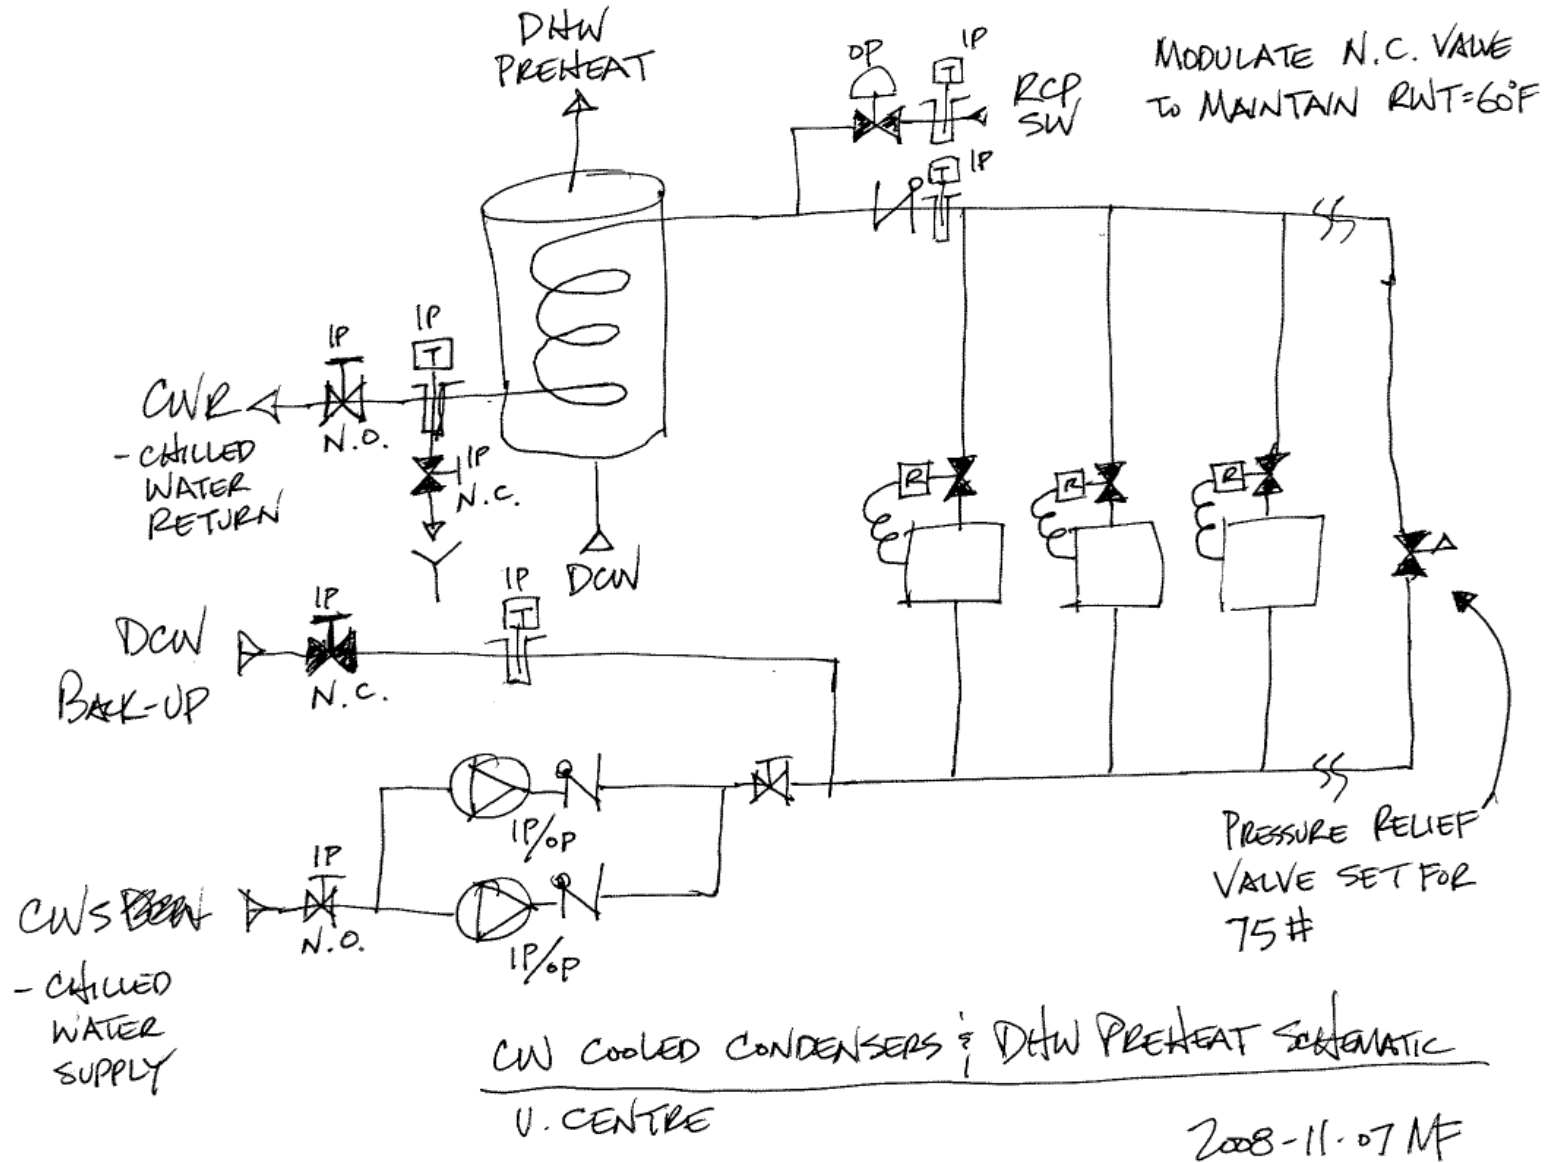 DHW
PREHEAT
OP
IP
T
RCP
SW
MODULATE N.C. VALVE
TO MAINTAIN RWT=60°F
IP
T
IP
IP
T
CWR
N.O.
- CHILLED
WATER
RETURN
IP
N.C.
R
R
R
DCW
IP
IP
T
DCW
BACK-UP
N.C.
IP/OP
IP
CWS
N.O.
IP/OP
- CHILLED
WATER
SUPPLY
PRESSURE RELIEF
VALVE SET FOR
75#
CW COOLED CONDENSERS & DHW PREHEAT SCHEMATIC
U. CENTRE
2008-11-07 MF